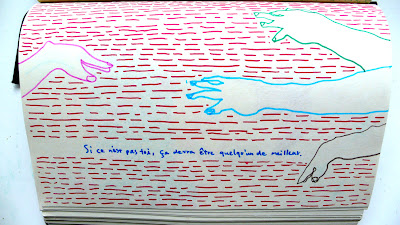 Si ce n'est pas toi, ça devra être quelqu'un de meilleur.